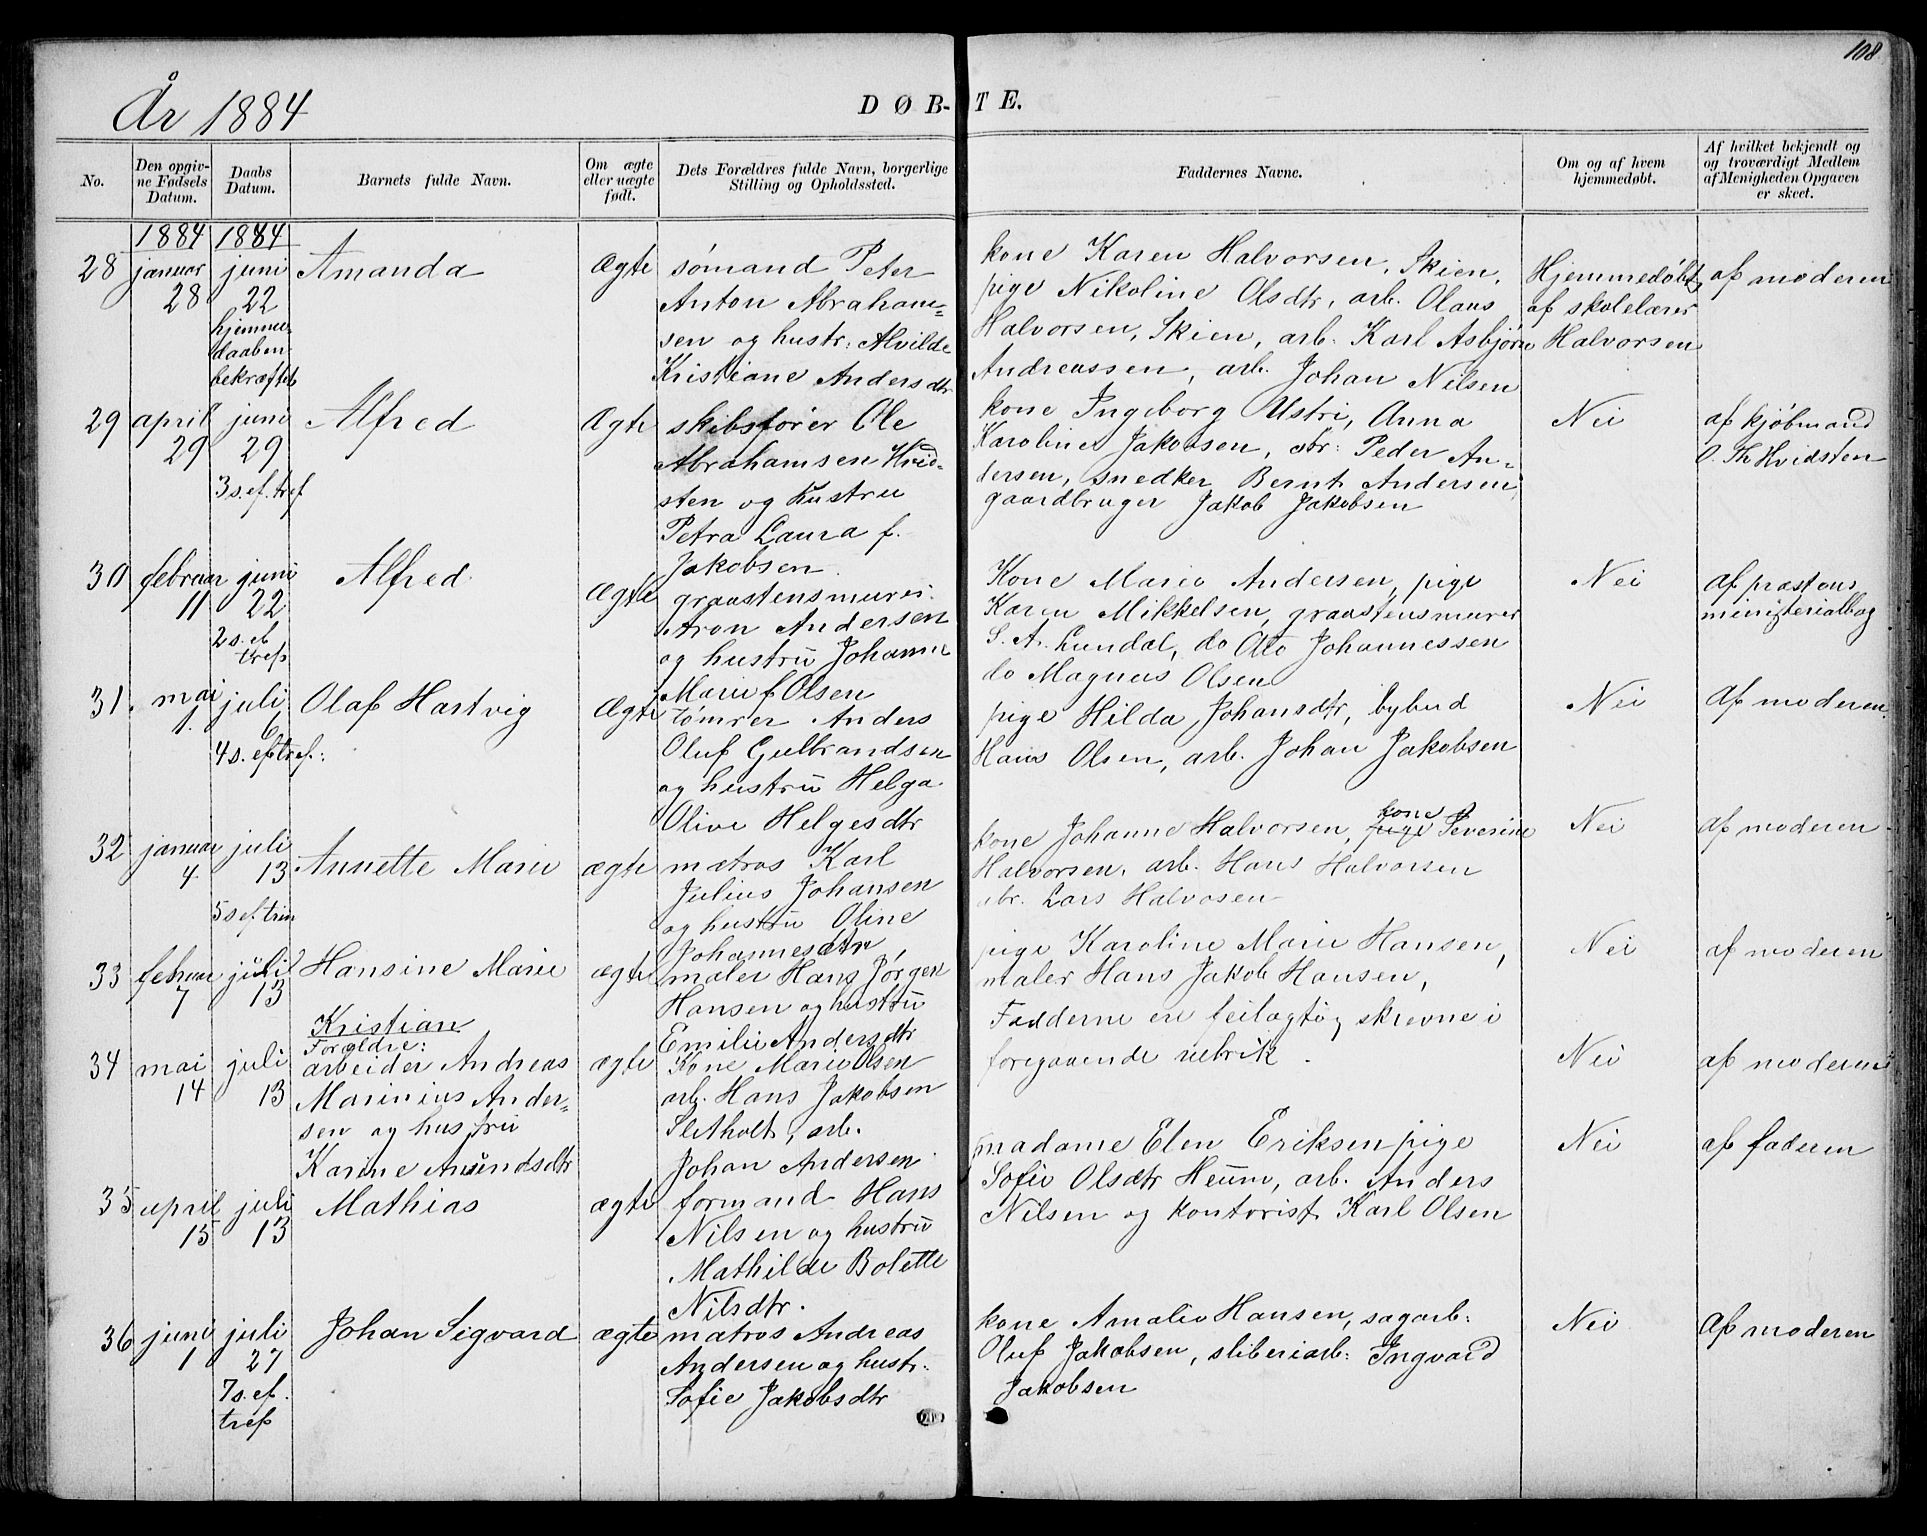 108
År 1884
DØB-TE.
No.
Den opgiv-
ne Fødsels
Datum.
Daabs
Datum.
Barnets fulde Navn.
Om ægte
eller uægte
født.
Dets Forældres fulde Navn, borgerlige
Stilling og Opholdssted.
Faddernes Navne.
Om og af hvem
hjemmedøbt.
Af hvilket bekjendt og
og troværdigt Medlem
af Menigheden Opgaven
er skeet.
1884 1884
28 januar
28
juni
22
hjemme-
daaben
bekræftet
Amanda
Ægte
sømand Peter
Anton Abraham-
sen og hustr: Alvilde
Kristiane Andersdtr
kone Karen Halvorsen, Skien,
pige Nikoline Olsdtr, arb. Olaus
Halvorsen, Skien, arb. Karl Asbjørn
Andreassen, arb. Johan Nilsen
Hjemmedøbt
af skolelærer
Halvorsen
af moderen
29 april
29
juni
29
3 s. ef. tref
Alfred
Ægte
skibsfører Ole
Abrahamsen Hvid-
sten og hustru
Petra Laura f.
Jakobsen
kone Ingeborg Ustri, Anna
Karoline Jakobsen, Peder An-
dersen, snedker Bernt Andersen,
gaardbruger Jakob Jakobsen
Nei
af kjøbmand
O. Th Hvidsten
30 februar
11
juni
22
2 s. ef
tref
Alfred
Ægte
graastensmurer
Aron Andersen
og hustru Johanne
Marie f Olsen
Kone Marie Andersen, pige
Karen Mikkelsen, graastensmurer
S. A. Lundal, do Johannessen
do Magnus Olsen
Nei
af præstens
ministerialbog
31. mai
1.
juli
6
4 s. ef tref:
Olaf Hartvig
Ægte
tømrer Anders
Oluf Gulbrandsen
og hustru Helga
Olive Helgesdtr
pige Hilda Johansdtr, bybud
Hans Olsen, arb. Johan Jakobsen
Nei
af moderen.
32 januar
4
juli
13
5 s ef. trin
Annette Marie
ægte
matros Karl
Julius Johansen
og hustru Oline
Johannesdtr
kone Johanne Halvorsen, pige kone Severine
Halvorsen, arb. Hans Halvorsen
Lars Halvosen
Nei
af moderen
33 febuar
7
juli
13
Hansine Marie
ægte
maler Hans Jørgen
Hansen og hustru
Emilie Andersdtr
pige Karoline Marie Hansen,
maler Hans Jakob Hansen,
Fadderne ere feilagtig skrevne i
foregaaende rubrik.
Nei
af moderen
34 mai
14
juli
13
Kristian
Forældre:
arbeider Andreas
Marinius Ander-
sen og hustru
Karine Amundsdtr
ægte
Kone Marie Olsen
arb. Hans Jakobsen
Sletholt, arb.
Johan Andersen
Nei
af moderen
35 april
15
juli
13
Mathias
ægte
formand Hans
Nilsen og hustru
Mathilde Bolette
Nilsdtr.
madame Elen Eriksen pige
Sofie Olsdtr Heum, arb. Anders
Nilsen og kontorist Karl Olsen
Nei
af faderen
36 juni
1
juli
27
7 s. ef.
tref
Johan Sigvard
ægte
matros Andreas
Andersen og hustr.
Sofie Jakobsdtr
kone Amalie Hansen, sagarb:
Oluf Jakobsen, sliberiarb: Ingvard
Jakobsen
Nei
af moderen